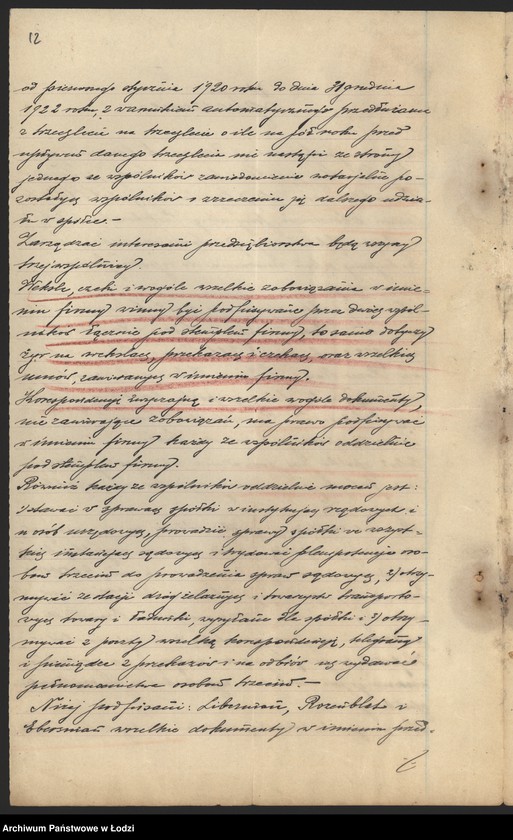 12
od pierwszego stycznia 1920 roku do dnia 31 grudnia
1922 roku, z warunkiem automatycznego przedłużania
z trzechlecia na trzechlecie o ile na pół roku przed
upływem danego trzechlecia nie nastąpi ze strony
jednego ze wspólników zawiadomienie notarjalne po-
zostałych wspólników o zrzeczeniu się dalszego udzia-
łu w spółce.-
Zarządzać interesami przedsiębiorstwa będą wszyscy
trzej wspólnicy.
Weksle, czeki i wogóle wszelkie zobowiązania w imie-
niu firmy winny być podpisywane przez dwóch wspól-
ników łącznie pod stemplem firmy, to samo dotyczy
żyr na wekslach, przekazach i czekach, oraz wszelkich
umów, zawieranych w imieniu firmy.
Korespondencję zwyczajną i wszelkie wogóle dokumenty,
nie zawierające zobowiązań, ma prawo podpisywać
w imieniu firmy każdy ze wspólników oddzielnie
pod stemplem firmy.
Również każdy ze wspólników oddzielnie mocen jest:
1) stawać w sprawach spółki w instytucjach rządowych i
u osób urzędowych, prowadzić sprawy spółki we wszyst-
kich instancjach sądowych i wydawać plenipotencje oso-
bom trzecim do prowadzenia spraw sądowych, 2) otrzy-
mywać ze stacji dróg żelaznych i towarzystw transporto-
wych towary i ładunki, wysyłane dla spółki i 3) otrzy-
mywać z poczty wszelką korespondencję, telegramy
i pieniądze z przekazów i na odbiór ich wydawać
pełnomocnictwa osobom trzecim.-
Niżej podpisani: Liberman, Rozenblat i
Eberman wszelkie dokumenty w imieniu przed-
Archiwum Państwowe w Łodzi